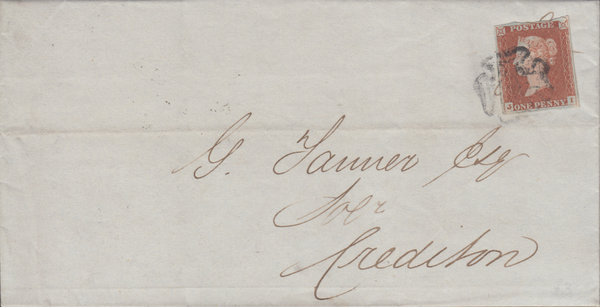 POSTAGE
ONE PENNY
G. Tanner Esq
Crediton